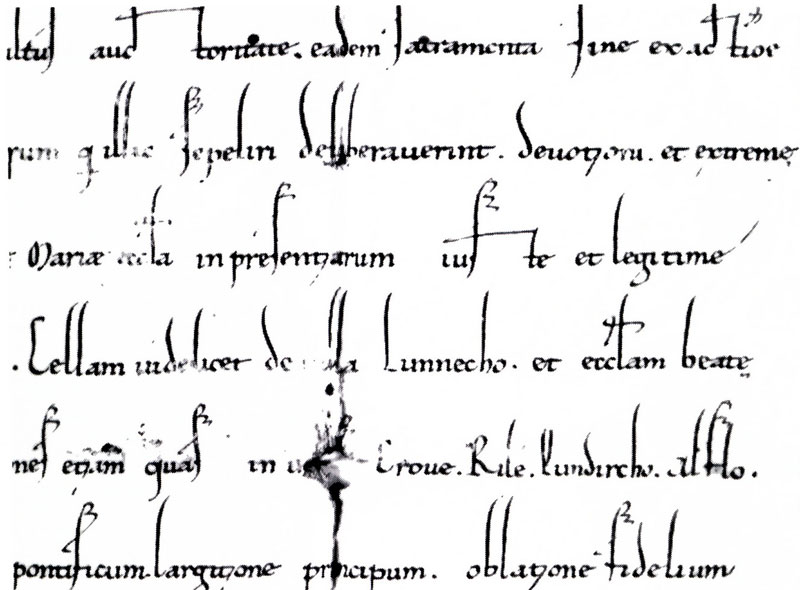 auctoritate. eadem sacramenta sine exactioe
rum q illic sepeliri deliberauerint. deuotioni. et extremę
Mariæ eccla in presentiarum iuste et legitime
. Cellam uidelicet de uilla Lunnecho. et ecclam beatę
nes etiam quas in Croue. Rile.
pontificum. largitione principum. oblatione fidelium